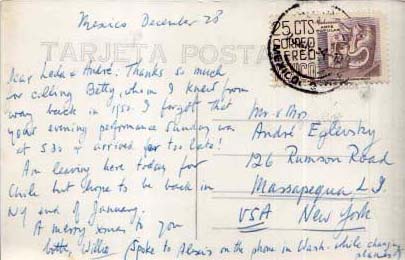 Mexico December 28
TARJETA POSTAL
25 CTS
CORREO
AEREO
MEXICO
Dear Leda & André: Thanks so much
for calling Betty, whom I knew from
way back in 1950. I forgot that
your evening performance Sunday was
at 530 & arrived far too late!
Am leaving here today for
Chile but hope to be back in
NY end of January.
A merry xmas to you
both, Willie
(Spoke to Alexis on the phone in Wash. while changing
planes)
Mr & Mrs.
André Eglevsky
126 Rumson Road
Massapequa L.I.
USA New York